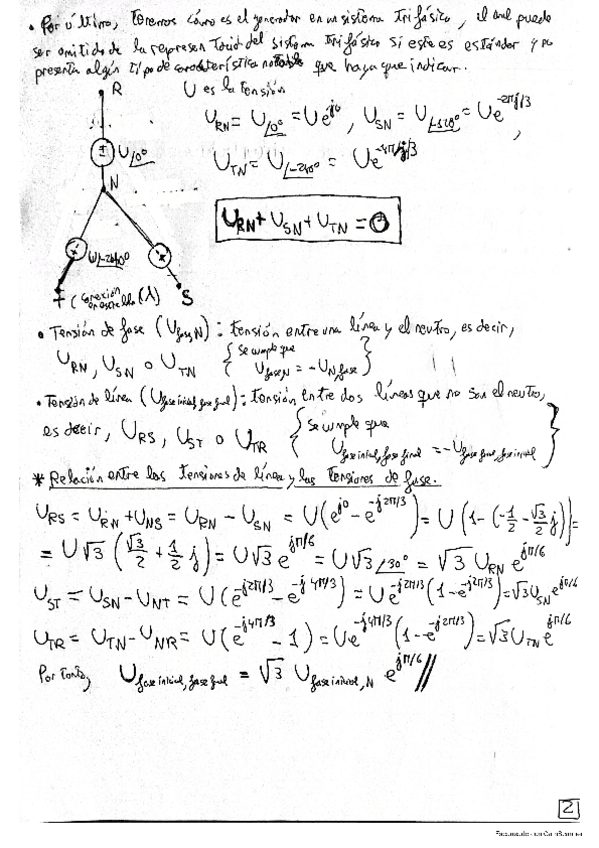 • Por último, veremos cómo es el generador en un sistema trifásico, el cual puede
ser omitido de la representación del sistema trifásico si este es estándar y no
presenta algún tipo de característica notable que haya que indicar.
R
U es la tensión
U_RN = U∠0° = Ue^{j0}, U_SN = U∠-120° = Ue^{-2πj/3},
U∠0°
N
U_TN = U∠-240° = Ue^{-4πj/3}
U_RN + U_SN + U_TN = 0
U∠-240°
T (conexión en estrella (λ)) S
• Tensión de fase (U_{fase,N}): tensión entre una línea y el neutro, es decir,
U_RN, U_SN o U_TN { se cumple que U_{fase,N} = -U_{N,fase} }
• Tensión de línea (U_{fase inicial, fase final}): tensión entre dos líneas que no son el neutro,
es decir, U_RS, U_ST o U_TR { se cumple que U_{fase inicial, fase final} = -U_{fase final, fase inicial} }
* Relación entre las tensiones de línea y las tensiones de fase.
U_RS = U_RN + U_NS = U_RN - U_SN = U(e^{j0} - e^{-j2π/3}) = U(1 - (-1/2 - √3/2 j)) =
= U√3 (√3/2 + 1/2 j) = U√3 e^{jπ/6} = U√3∠30° = √3 U_RN e^{jπ/6}
U_ST = U_SN - U_NT = U(e^{-j2π/3} - e^{-j4π/3}) = Ue^{-j2π/3}(1 - e^{-j2π/3}) = √3 U_SN e^{jπ/6}
U_TR = U_TN - U_NR = U(e^{-j4π/3} - 1) = Ue^{-j4π/3}(1 - e^{-j2π/3}) = √3 U_TN e^{jπ/6}
Por tanto, U_{fase inicial, fase final} = √3 U_{fase inicial, N} e^{jπ/6} //
2
Escaneado con CamScanner